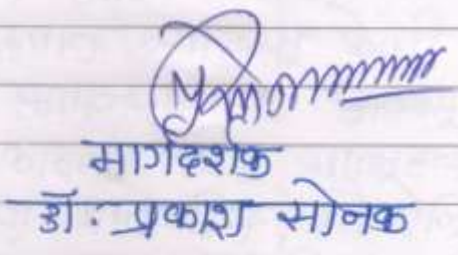 मार्गदर्शक
डॉ. प्रकाश सोनक